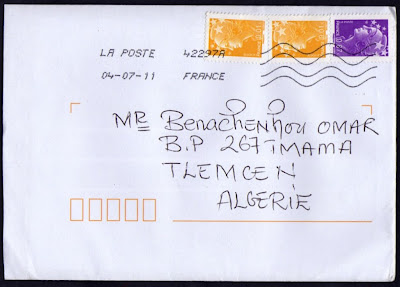 LA POSTE 42297A
04-07-11 FRANCE
MR Benachenhou OMAR
B.P 267 IMAMA
TLEMCEN
ALGERIE